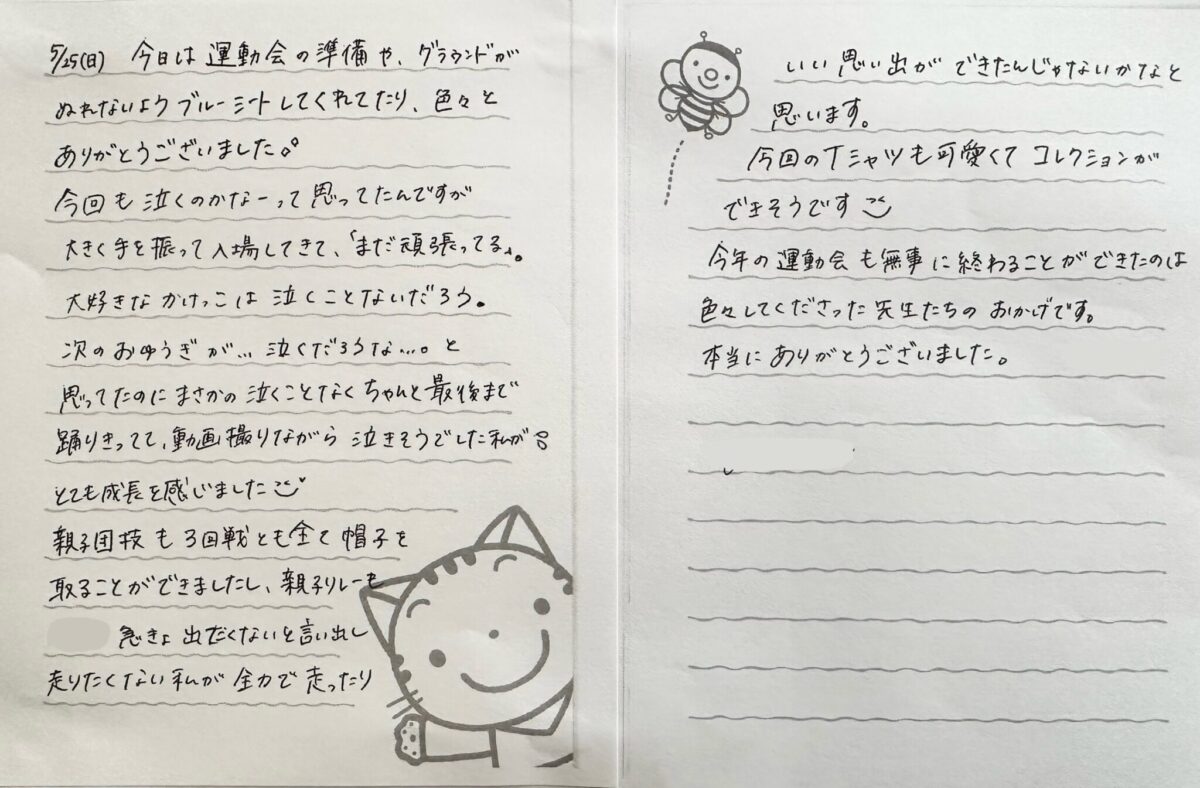 5/25(日) 今日は運動会の準備や、グラウンドが
ぬれないようブルーシートしてくれてたり、色々と
ありがとうございました。
今回も泣くのかなーって思ってたんですが
大きく手を振って入場してきて、「まだ頑張ってる」。
大好きなかけっこは泣くことないだろう。
次のおゆうぎが…泣くだろうな…。と
思ってたのにまさかの泣くことなくちゃんと最後まで
踊りきってて、動画撮りながら泣きそうでした私が
とても成長を感じました
親子団技も3回戦とも全て帽子を
取ることができましたし、親子リレーも
急きょ出たくないと言い出し
走りたくない私が全力で走ったり
いい思い出ができたんじゃないかなと
思います。
今回のTシャツも可愛くてコレクションが
できそうです
今年の運動会も無事に終わることができたのは
色々してくださった先生たちのおかげです。
本当にありがとうございました。